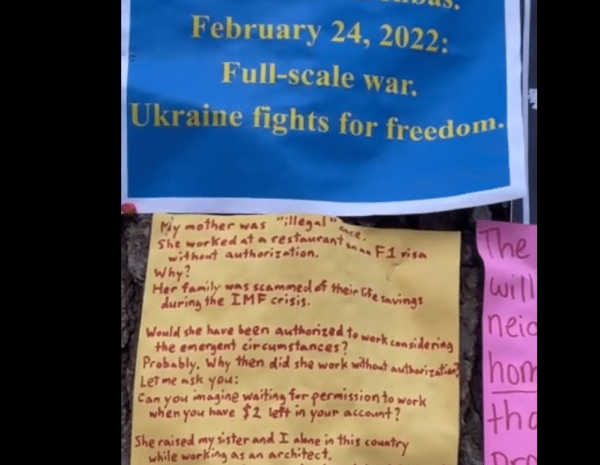 February 24, 2022:
Full-scale war.
Ukraine fights for freedom.
My mother was "illegal" once.
She worked at a restaurant on an F1 visa
without authorization.
Why?
Her family was scammed of their life savings
during the IMF crisis.
Would she have been authorized to work considering
the emergent circumstances?
Probably. Why then did she work without authorization?
Let me ask you:
Can you imagine waiting for permission to work
when you have $2 left in your account?
She raised my sister and I alone in this country
while working as an architect.
The
will
hom